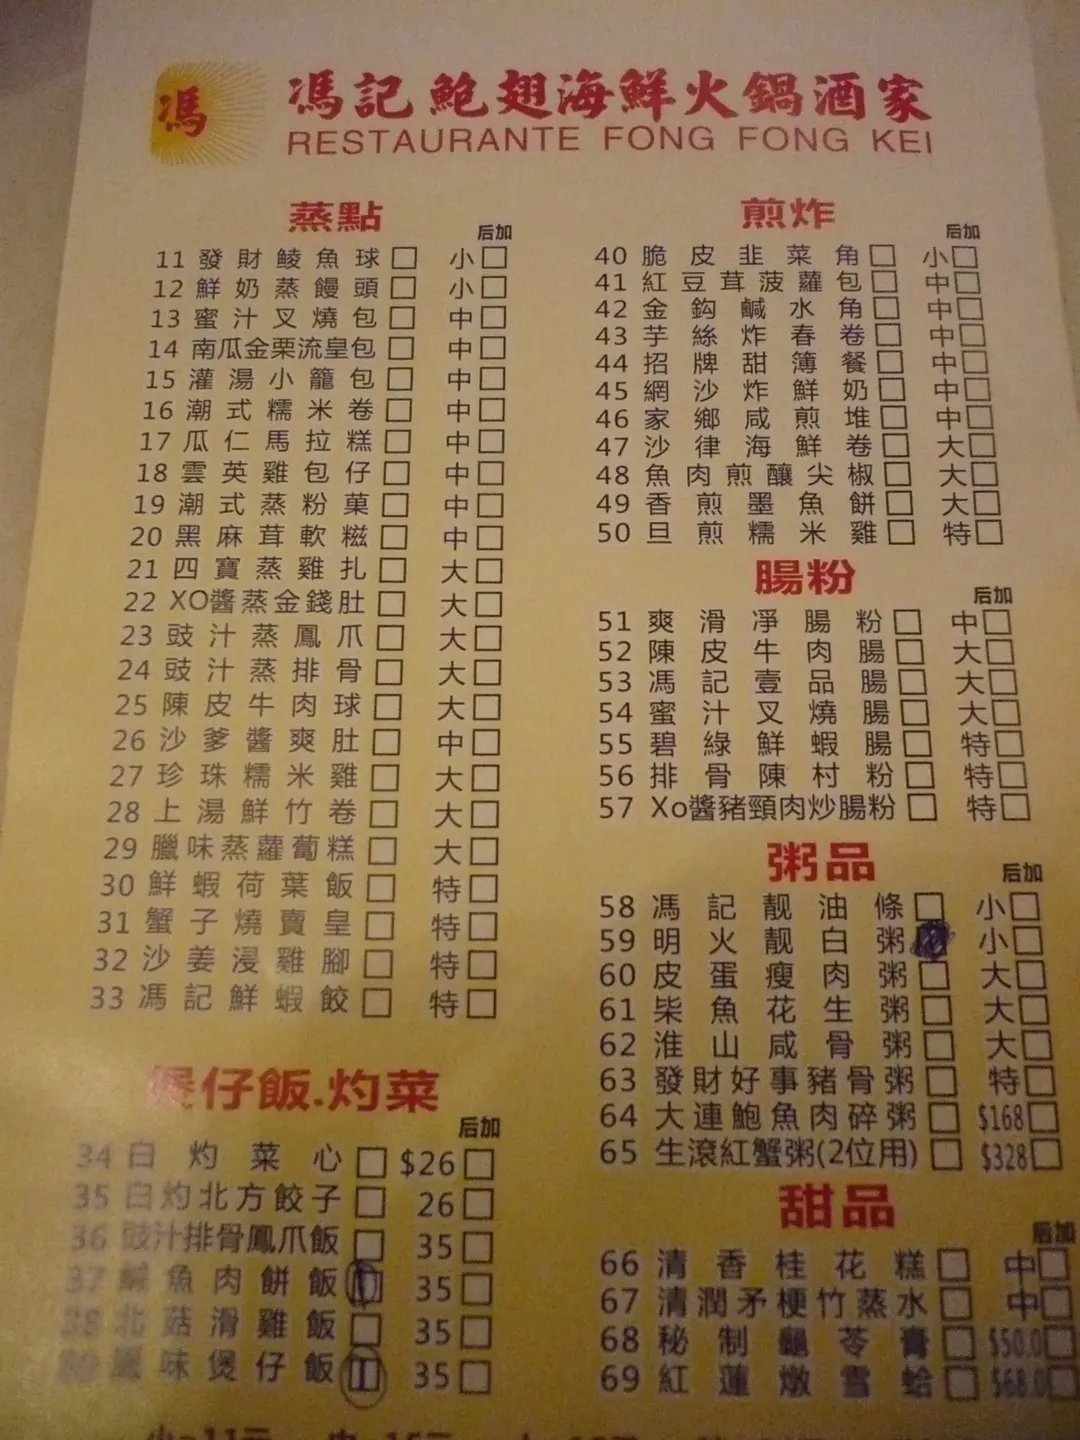 馮
馮記鮑翅海鮮火鍋酒家
RESTAURANTE FONG FONG KEI
蒸點
后加
11 發財鯪魚球 小
12 鮮奶蒸饅頭 小
13 蜜汁叉燒包 中
14 南瓜金栗流皇包 中
15 灌湯小籠包 中
16 潮式糯米卷 中
17 瓜仁馬拉糕 中
18 雲英雞包仔 中
19 潮式蒸粉菓 中
20 黑麻茸軟糍 中
21 四寶蒸雞扎 大
22 XO醬蒸金錢肚 大
23 豉汁蒸鳳爪 大
24 豉汁蒸排骨 大
25 陳皮牛肉球 大
26 沙爹醬爽肚 中
27 珍珠糯米雞 大
28 上湯鮮竹卷 大
29 臘味蒸蘿蔔糕 大
30 鮮蝦荷葉飯 特
31 蟹子燒賣皇 特
32 沙姜浸雞腳 特
33 馮記鮮蝦餃 特
煲仔飯.灼菜
后加
34 白灼菜心 $26
35 白灼北方餃子 26
36 豉汁排骨鳳爪飯 35
37 鹹魚肉餅飯 35
38 北菇滑雞飯 35
39 臘味煲仔飯 35
煎炸
后加
40 脆皮韭菜角 小
41 紅豆茸菠蘿包 中
42 金鈎鹹水角 中
43 芋絲炸春卷 中
44 招牌甜簿餐 中
45 網沙炸鮮奶 中
46 家鄉咸煎堆 中
47 沙律海鮮卷 大
48 魚肉煎釀尖椒 大
49 香煎墨魚餅 大
50 旦煎糯米雞 特
腸粉
后加
51 爽滑凈腸粉 中
52 陳皮牛肉腸 大
53 馮記壹品腸 大
54 蜜汁叉燒腸 大
55 碧綠鮮蝦腸 特
56 排骨陳村粉 特
57 Xo醬豬頸肉炒腸粉 特
粥品
后加
58 馮記靚油條 小
59 明火靚白粥 小
60 皮蛋瘦肉粥 大
61 柴魚花生粥 大
62 淮山咸骨粥 大
63 發財好事豬骨粥 特
64 大連鮑魚肉碎粥 $168
65 生滾紅蟹粥(2位用) $328
甜品
后加
66 清香桂花糕 中
67 清潤矛梗竹蒸水 中
68 秘制龜苓膏 $50.0
69 紅蓮燉雪蛤 $68.0